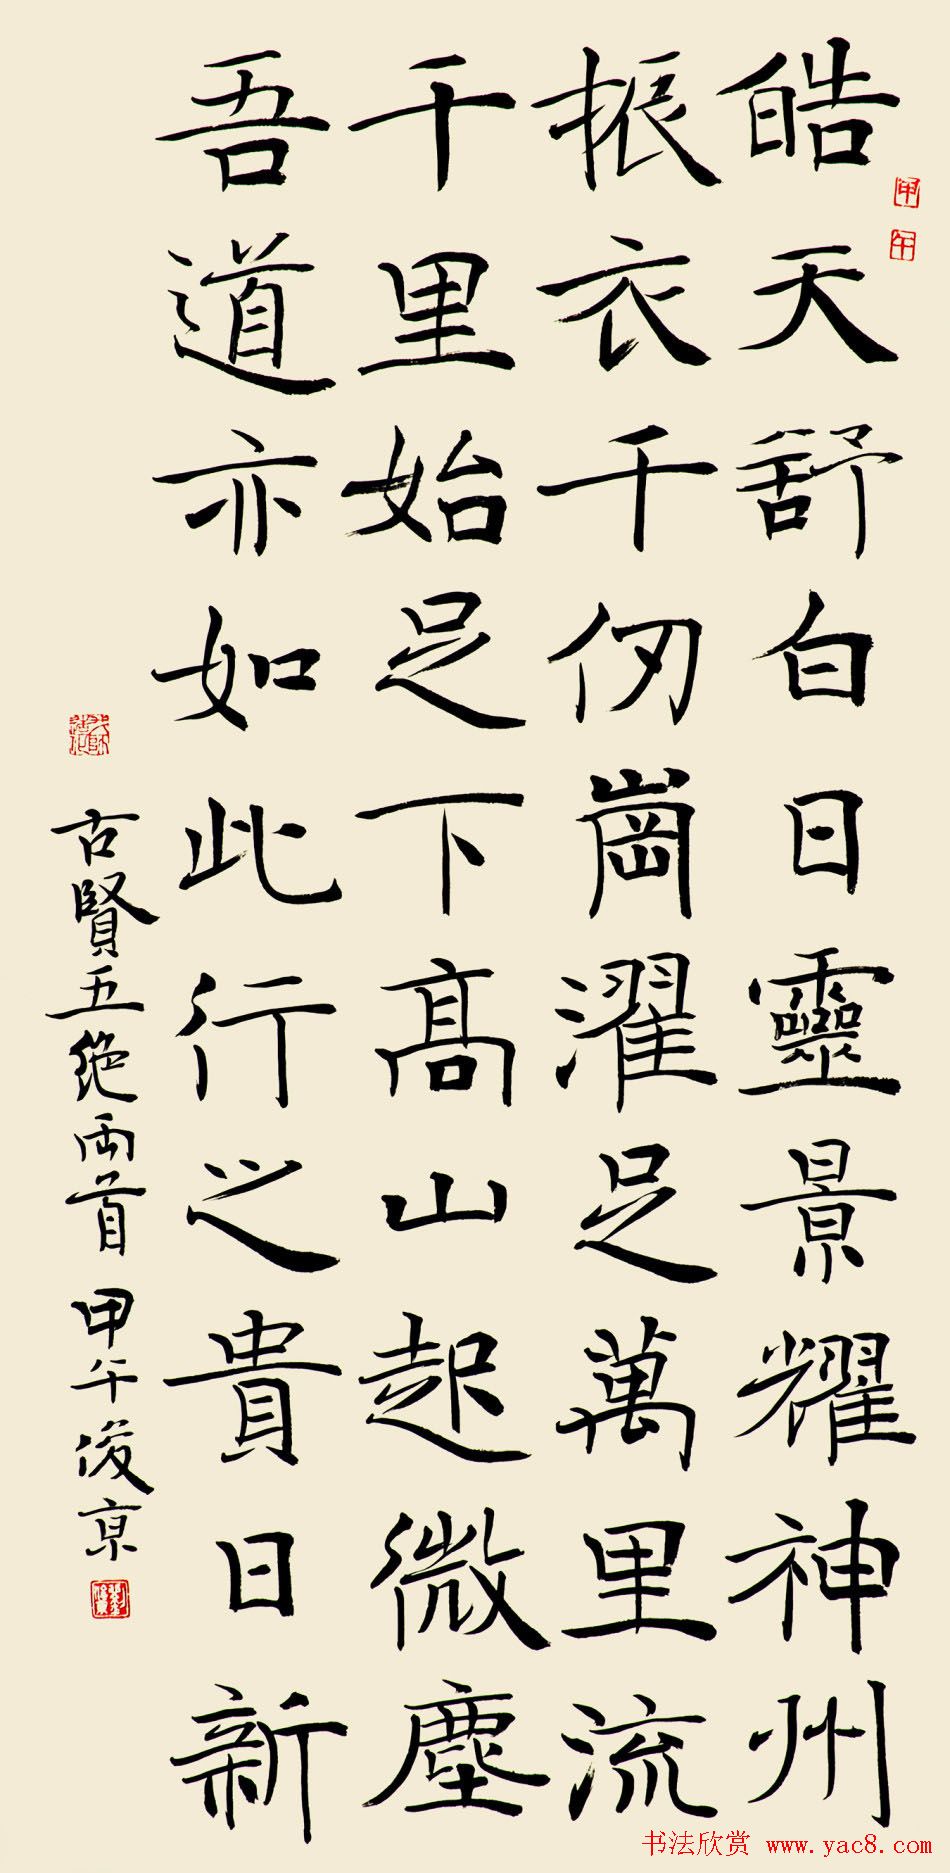 皓天舒白日靈景耀神州
振衣千仞崗濯足萬里流
千里始足下高山起微塵
吾道亦如此行之貴日新
古賢五絶兩首 甲午俊京
甲午
书法欣赏 www.yac8.com